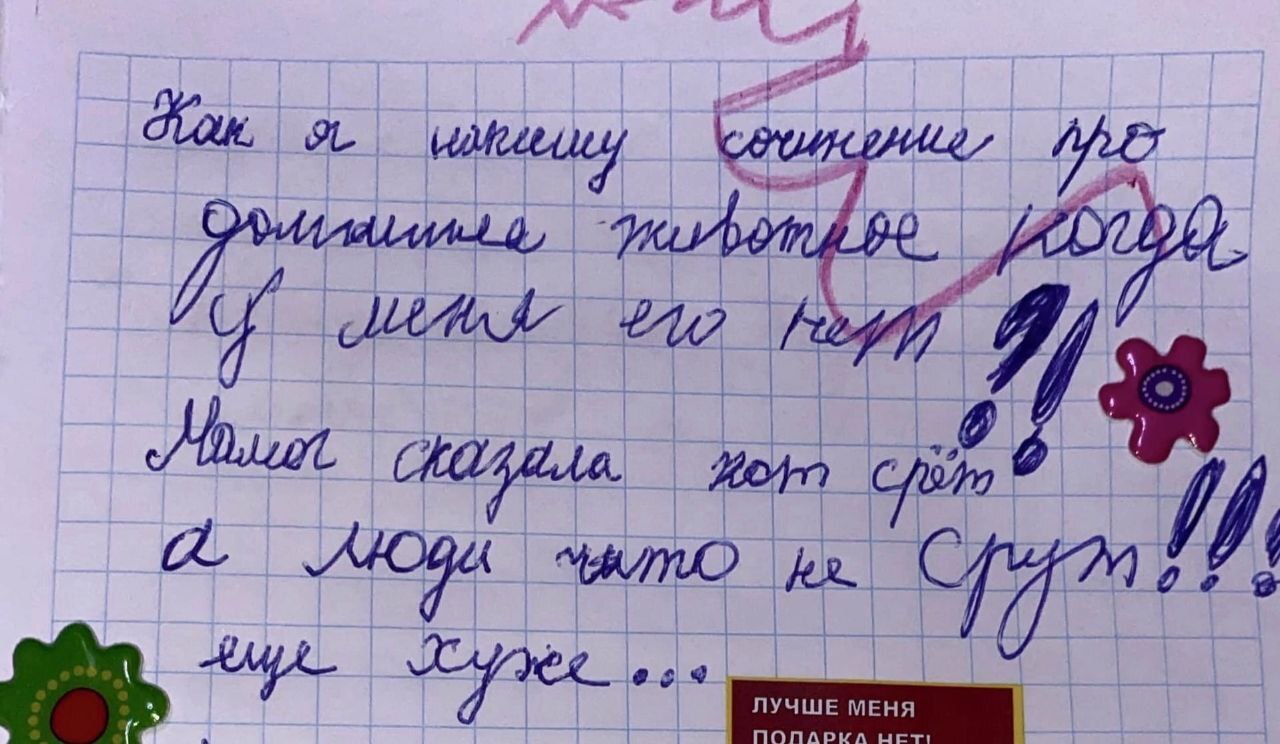 Как я напишу сочинение про
домашнее животное когда
у меня его нет?!
Мама сказала кот срёт
а люди чито не срут!!!
еще хуже...
ЛУЧШЕ МЕНЯ
ПОДАРКА НЕТ!